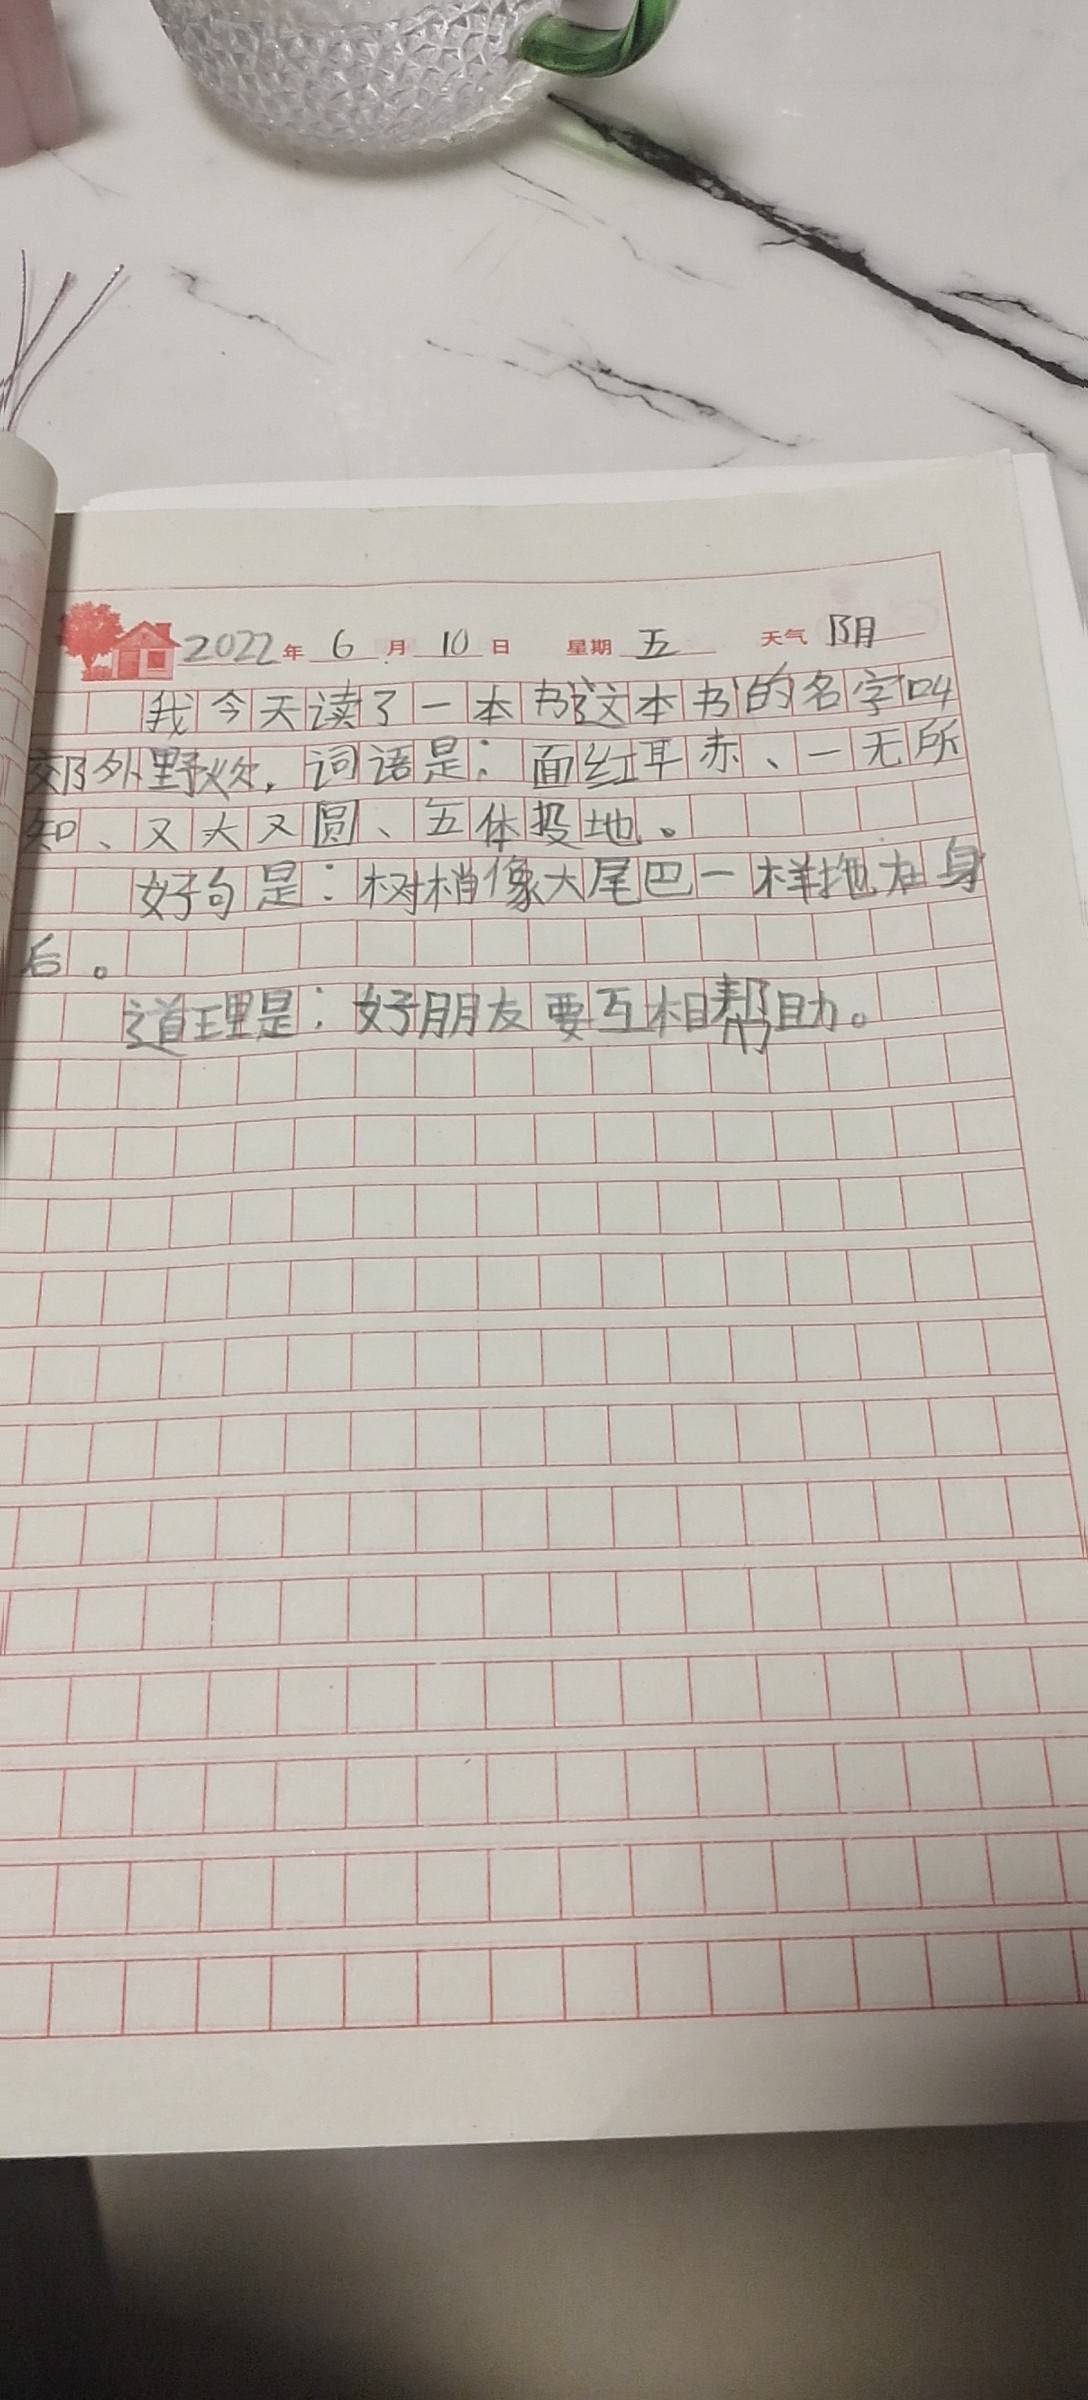 2022年 6月 10日 星期 五 天气 阴
我今天读了一本书这本书的名字叫
郊外野炊，词语是：面红耳赤、一无所
知、又大又圆、五体投地。
好句是：树梢像大尾巴一样拖在身
后。
道理是：好朋友要互相帮助。